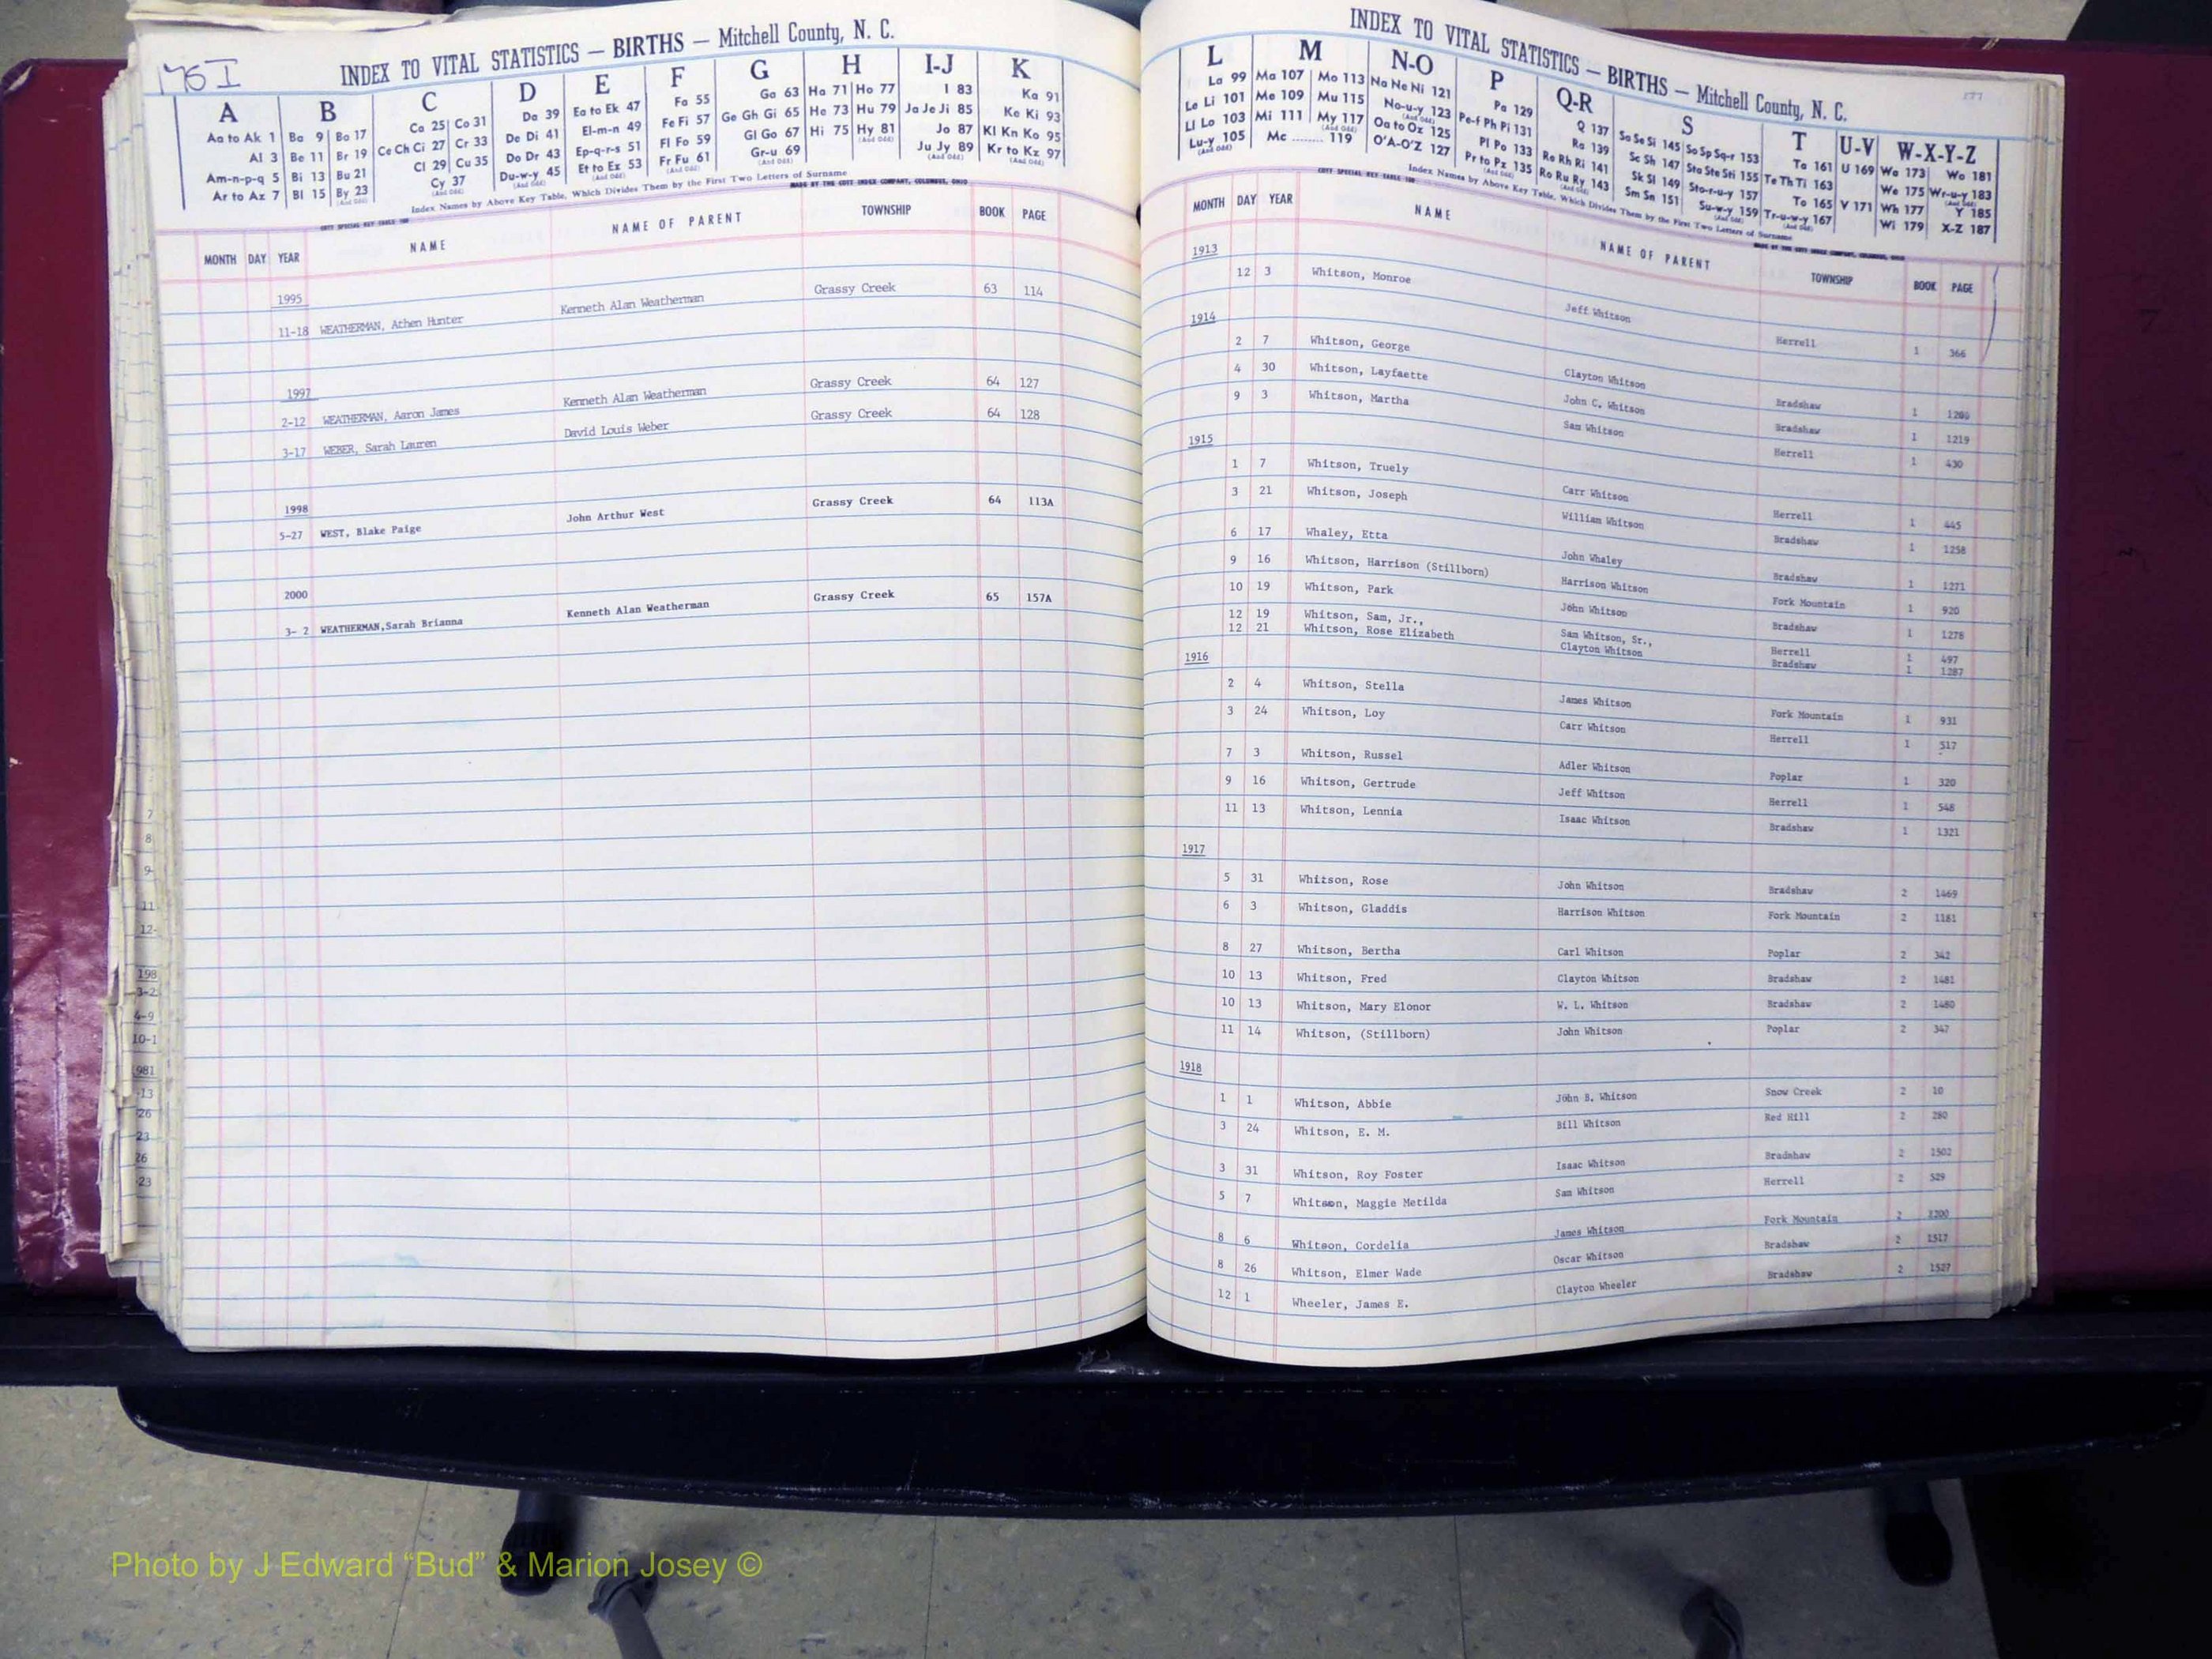 176 I
INDEX TO VITAL STATISTICS — BIRTHS — Mitchell County, N. C.
A B C D E F G H I-J K
Aa to Ak 1 Ba 9 Bo 17 Ca 25 Co 31 Da 39 Ea to Ek 47 Fa 55 Ga 63 Ha 71 Ho 77 I 83 Ka 91
Al 3 Be 11 Br 19 Ce Ch Ci 27 Cr 33 De Di 41 El-m-n 49 Fe Fi 57 Ge Gh Gi 65 He 73 Hu 79 Ja Je Ji 85 Ke Ki 93
Am-n-p-q 5 Bi 13 Bu 21 Cl 29 Cu 35 Do Dr 43 Ep-q-r-s 51 Fl Fo 59 Gl Go 67 Hi 75 Hy 81 (And Odd) Jo 87 Kl Kn Ko 95
Ar to Az 7 Bl 15 By 23 (And Odd) Cy 37 (And Odd) Du-w-y 45 (And Odd) Et to Ez 53 (And Odd) Fr Fu 61 (And Odd) Gr-u 69 (And Odd) Ju Jy 89 (And Odd) Kr to Kz 97 (And Odd)
Index Names by Above Key Table, Which Divides Them by the First Two Letters of Surname
COTT SPECIAL KEY TABLE 100 MADE BY THE COTT INDEX COMPANY, COLUMBUS, OHIO
MONTH DAY YEAR NAME NAME OF PARENT TOWNSHIP BOOK PAGE
1995
11-18 WEATHERMAN, Athen Hunter Kenneth Alan Weatherman Grassy Creek 63 114
1997
2-12 WEATHERMAN, Aaron James Kenneth Alan Weatherman Grassy Creek 64 127
3-17 WEBER, Sarah Lauren David Louis Weber Grassy Creek 64 128
1998
5-27 WEST, Blake Paige John Arthur West Grassy Creek 64 113A
2000
3- 2 WEATHERMAN,Sarah Brianna Kenneth Alan Weatherman Grassy Creek 65 157A
7
8
9-
11
12-
198
3-2
4-9
10-1
981
-13
26
23
26
23
INDEX TO VITAL STATISTICS — BIRTHS — Mitchell County, N. C.
177
L M N-O P Q-R S T U-V W-X-Y-Z
La 99 Ma 107 Mo 113 Na Ne Ni 121 Pa 129 Q 137 Sa Se Si 145 So Sp Sq-r 153 Ta 161 U 169 Wa 173 Wo 181
Le Li 101 Me 109 Mu 115 No-u-y 123 (And Odd) Pe-f Ph Pi 131 Ra 139 Sc Sh 147 Sta Ste Sti 155 Te Th Ti 163 We 175 Wr-u-y 183 (And Odd)
Ll Lo 103 Mi 111 My 117 (And Odd) Oa to Oz 125 Pl Po 133 Re Rh Ri 141 Sk Sl 149 Sto-r-u-y 157 To 165 V 171 Wh 177 Y 185
Lu-y 105 (And Odd) Mc ........ 119 O'A-O'Z 127 Pr to Pz 135 Ro Ru Ry 143 (And Odd) Sm Sn 151 Su-w-y 159 (And Odd) Tr-u-w-y 167 (And Odd) Wi 179 X-Z 187
Index Names by Above Key Table, Which Divides Them by the First Two Letters of Surname
COTT SPECIAL KEY TABLE 100 MADE BY THE COTT INDEX COMPANY, COLUMBUS, OHIO
MONTH DAY YEAR NAME NAME OF PARENT TOWNSHIP BOOK PAGE
1913
12 3 Whitson, Monroe Jeff Whitson Herrell 1 366
1914
2 7 Whitson, George Clayton Whitson Bradshaw 1 1200
4 30 Whitson, Layfaette John C. Whitson Bradshaw 1 1219
9 3 Whitson, Martha Sam Whitson Herrell 1 430
1915
1 7 Whitson, Truely Carr Whitson Herrell 1 445
3 21 Whitson, Joseph William Whitson Bradshaw 1 1258
6 17 Whaley, Etta John Whaley Bradshaw 1 1271
9 16 Whitson, Harrison (Stillborn) Harrison Whitson Fork Mountain 1 920
10 19 Whitson, Park John Whitson Bradshaw 1 1278
12 19 Whitson, Sam, Jr., Sam Whitson, Sr., Herrell 1 497
12 21 Whitson, Rose Elizabeth Clayton Whitson Bradshaw 1 1287
1916
2 4 Whitson, Stella James Whitson Fork Mountain 1 931
3 24 Whitson, Loy Carr Whitson Herrell 1 517
7 3 Whitson, Russel Adler Whitson Poplar 1 320
9 16 Whitson, Gertrude Jeff Whitson Herrell 1 548
11 13 Whitson, Lennia Isaac Whitson Bradshaw 1 1321
1917
5 31 Whitson, Rose John Whitson Bradshaw 2 1469
6 3 Whitson, Gladdis Harrison Whitson Fork Mountain 2 1181
8 27 Whitson, Bertha Carl Whitson Poplar 2 342
10 13 Whitson, Fred Clayton Whitson Bradshaw 2 1481
10 13 Whitson, Mary Elonor W. L. Whitson Bradshaw 2 1480
11 14 Whitson, (Stillborn) John Whitson Poplar 2 347
1918
1 1 Whitson, Abbie John B. Whitson Snow Creek 2 10
3 24 Whitson, E. M. Bill Whitson Red Hill 2 280
3 31 Whitson, Roy Foster Isaac Whitson Bradshaw 2 1502
5 7 Whitson, Maggie Metilda Sam Whitson Herrell 2 529
8 6 Whitson, Cordelia James Whitson Fork Mountain 2 1200
8 26 Whitson, Elmer Wade Oscar Whitson Bradshaw 2 1517
12 1 Wheeler, James E. Clayton Wheeler Bradshaw 2 1527
Photo by J Edward “Bud” & Marion Josey ©